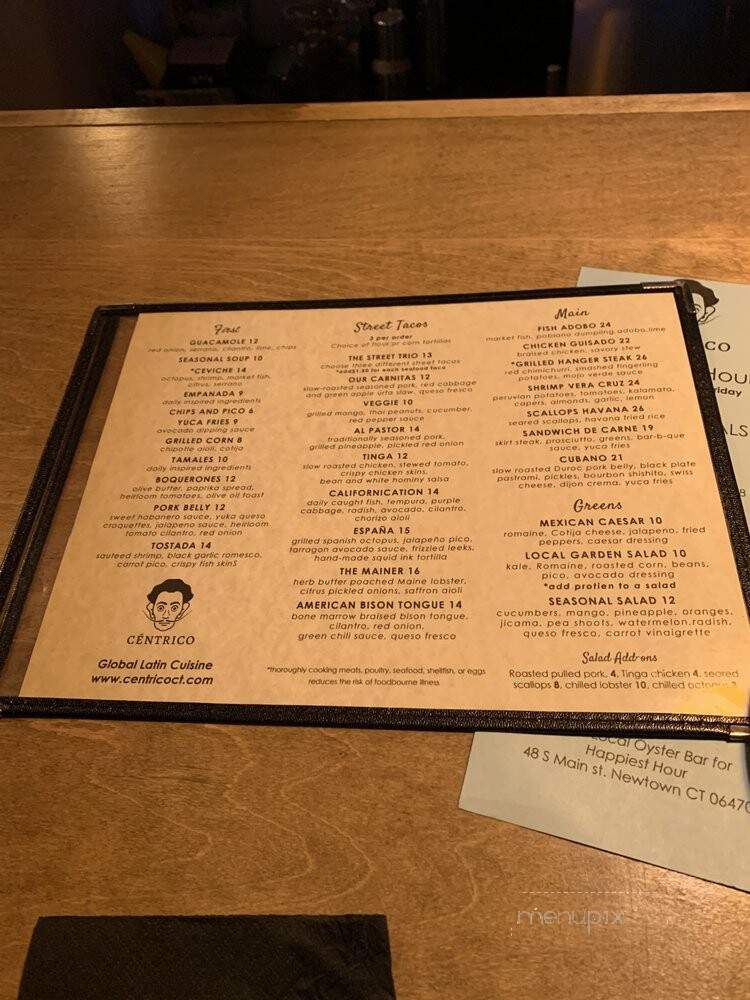 First
GUACAMOLE 12
red onion, serrano, cilantro, lime, chips
SEASONAL SOUP 10
*CEVICHE 14
octopus, shrimp, market fish,
citrus, serrano
EMPANADA 9
daily inspired ingredients
CHIPS AND PICO 6
YUCA FRIES 9
avocado dipping sauce
GRILLED CORN 8
chipotle aioli, cotija
TAMALES 10
daily inspired ingredients
BOQUERONES 12
olive butter, paprika spread,
heirloom tomatoes, olive oil toast
PORK BELLY 12
sweet habanero sauce, yuka queso
croquettes, jalapeno sauce, heirloom
tomato cilantro, red onion
TOSTADA 14
sauteed shrimp, black garlic romesco,
carrot pico, crispy fish skinS
CÉNTRICO
Global Latin Cuisine
www.centricoct.com
Street Tacos
3 per order
Choice of flour or corn tortillas
THE STREET TRIO 13
choose three different street tacos
*add$1.50 for each seafood taco
OUR CARNITAS 12
slow-roasted seasoned pork, red cabbage
and green apple urta slaw, queso fresco
VEGGIE 10
grilled mango, thai peanuts, cucumber,
red pepper sauce
AL PASTOR 14
traditionally seasoned pork,
grilled pineapple, pickled red onion
TINGA 12
slow roasted chicken, stewed tomato,
crispy chicken skins,
bean and white hominy salsa
CALIFORNICATION 14
daily caught fish, tempura, purple
cabbage, radish, avocado, cilantro,
chorizo aioli
ESPAÑA 15
grilled spanish octopus, jalapeño pico,
tarragon avocado sauce, frizzled leeks,
hand-made squid ink tortilla
THE MAINER 16
herb butter poached Maine lobster,
citrus pickled onions, saffron aioli
AMERICAN BISON TONGUE 14
bone marrow braised bison tongue,
cilantro, red onion,
green chili sauce, queso fresco
*thoroughly cooking meats, poultry, seafood, shellfish, or eggs
reduces the risk of foodbourne illness
Main
FISH ADOBO 24
market fish, poblano dumpling, adobo, lime
CHICKEN GUISADO 22
braised chicken, savory stew
*GRILLED HANGER STEAK 26
red chimichurri, smashed fingerling
potatoes, mojo verde sauce
SHRIMP VERA CRUZ 24
peruvian potatoes, tomatoes, kalamata,
capers, almonds, garlic, lemon
SCALLOPS HAVANA 26
seared scallops, havana fried rice
SANDWICH DE CARNE 19
skirt steak, prosciutto, greens, bar-b-que
sauce, yuca fries
CUBANO 21
slow roasted Duroc pork belly, black plate
pastrami, pickles, bourbon shishito, swiss
cheese, dijon crema, yuca fries
Greens
MEXICAN CAESAR 10
romaine, Cotija cheese, jalapeno, fried
peppers, caesar dressing
LOCAL GARDEN SALAD 10
kale, Romaine, roasted corn, beans,
pico, avocado dressing
*add protien to a salad
SEASONAL SALAD 12
cucumbers, mango, pineapple, oranges,
jicama, pea shoots, watermelon,radish,
queso fresco, carrot vinaigrette
Salad Add-ons
Roasted pulled pork, 4, Tinga chicken 4, seared
scallops 8, chilled lobster 10, chilled octopus
CO
HOU
riday
ALS
8
Local Oyster Bar for
Happiest Hour
48 S Main st. Newtown CT 06470
menupix